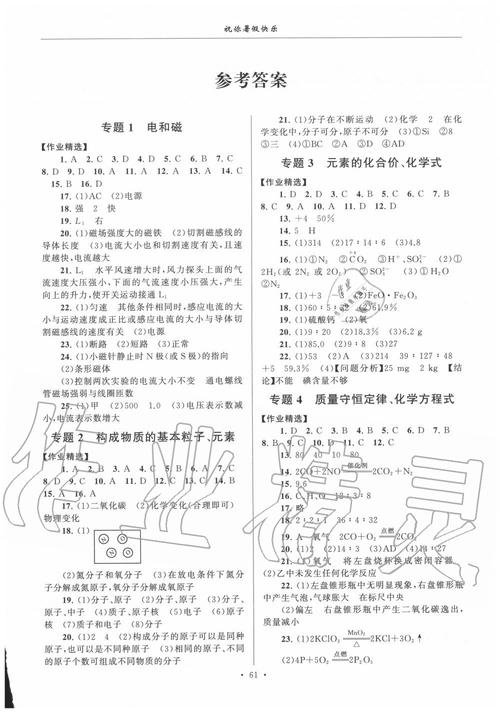 祝你暑假快乐
参考答案
专题1 电和磁
【作业精选】
1. A 2. C 3. A 4. C 5. C 6. B 7. C
8. D 9. D 10. A 11. A 12. D 13. A 14. C
15. B 16. D
17. (1)AC (2)电源
18. 强 2 快
19. L₁ 右
20. (1)磁场强度大的磁铁 (2)切割磁感线的
导体长度 (3)电流大小也和切割速度大小有关,且速
度越快,电流越大
21. L₁ 水平风速增大时,风力探头上面的气
流速度大压强小,下面的气流速度小压强大,产生
向上的升力,使开关动接通L₁
22. (1)匀速 其他条件相同时,感应电流的大
小与运动速度成正比或感应电流的大小与导体切
割磁感线的速度有关 (2)电源
23. (1)断路 (2)短路 (3)正常
24. (1)小磁针静止时N极(或S极)的指向
(2)条形磁体
(3)控制两次实验的电流大小不变 通电螺线
管磁场强弱与线圈匝数
25. (1)甲 (2)500 1.0 (3)电压表示数减
小,电流表示数增大
专题2 构成物质的基本粒子、元素
【作业精选】
1. A 2. B 3. A 4. D 5. C 6. B 7. C
8. D 9. D 10. D 11. D 12. D 13. C 14. B
15. A 16. A
17. (1)二氧化碳 (2)化学变化(合理即可)
物理变化
18. (1)
(2)氮分子和氧分子 (3)在放电条件下氮分
子分解成氮原子,氧分子分解成氧原子
19. (1)原子、分子 (2)分子、原子 (3)原子、
质子、中子 (4)质子 (5)质子 (6)原子、原子核、
原子核 (7)质子和电子 (8)原子
20. (1)2 4 (2)构成分子的原子可以是同种
原子,也可以是不同种原子,同种的原子或不同种
的原子个数可组成不同物质的分子
21. (1)分子在不断运动 (2)化学 2 在化
学变化中,分子可分,原子不可分 (3)①Si ②8
③三 (4)①BC ②A ③D ④AC
专题3 元素的化合价、化学式
【作业精选】
1. D 2. D 3. C 4. B 5. C 6. A 7. C
8. C 9. A 10. A 11. D 12. D
13. +4 50%
14. D
15. 5 H
16. (1)①N₂ ②CO₂ ③H⁺、SO₄²⁻ (2)①
17. (1)+3 -3 (2)FeO·Fe₂O₃
19. (1)硫酸钙 (2)氧
20. (1)9∶20 (2)18.3% (3)6.2g
21. (1)85,0 (2)9∶8
22. (1)53 (2)A (3)214 39∶127∶48
+5 59.8% (4)【问题分析】25 mg 2 kg 【结
论】不能 碘含量不够
专题4 质量守恒定律、化学方程式
【作业精选】
15. 9.6
17. 略
18. 2∶2∶1 36∶4∶32
20. (1)2 (2)14∶15 (3)AD (4)C
21. (1)氧气 将左盘烧杯换成密闭容器
(2)乙中未发生任何化学反应
22. (1)左盘锥形瓶中无明显现象,右盘锥形瓶
中产生气泡,气球胀大 等于
(2)偏左 右盘锥形瓶中产生二氧化碳逸出,
质量减小